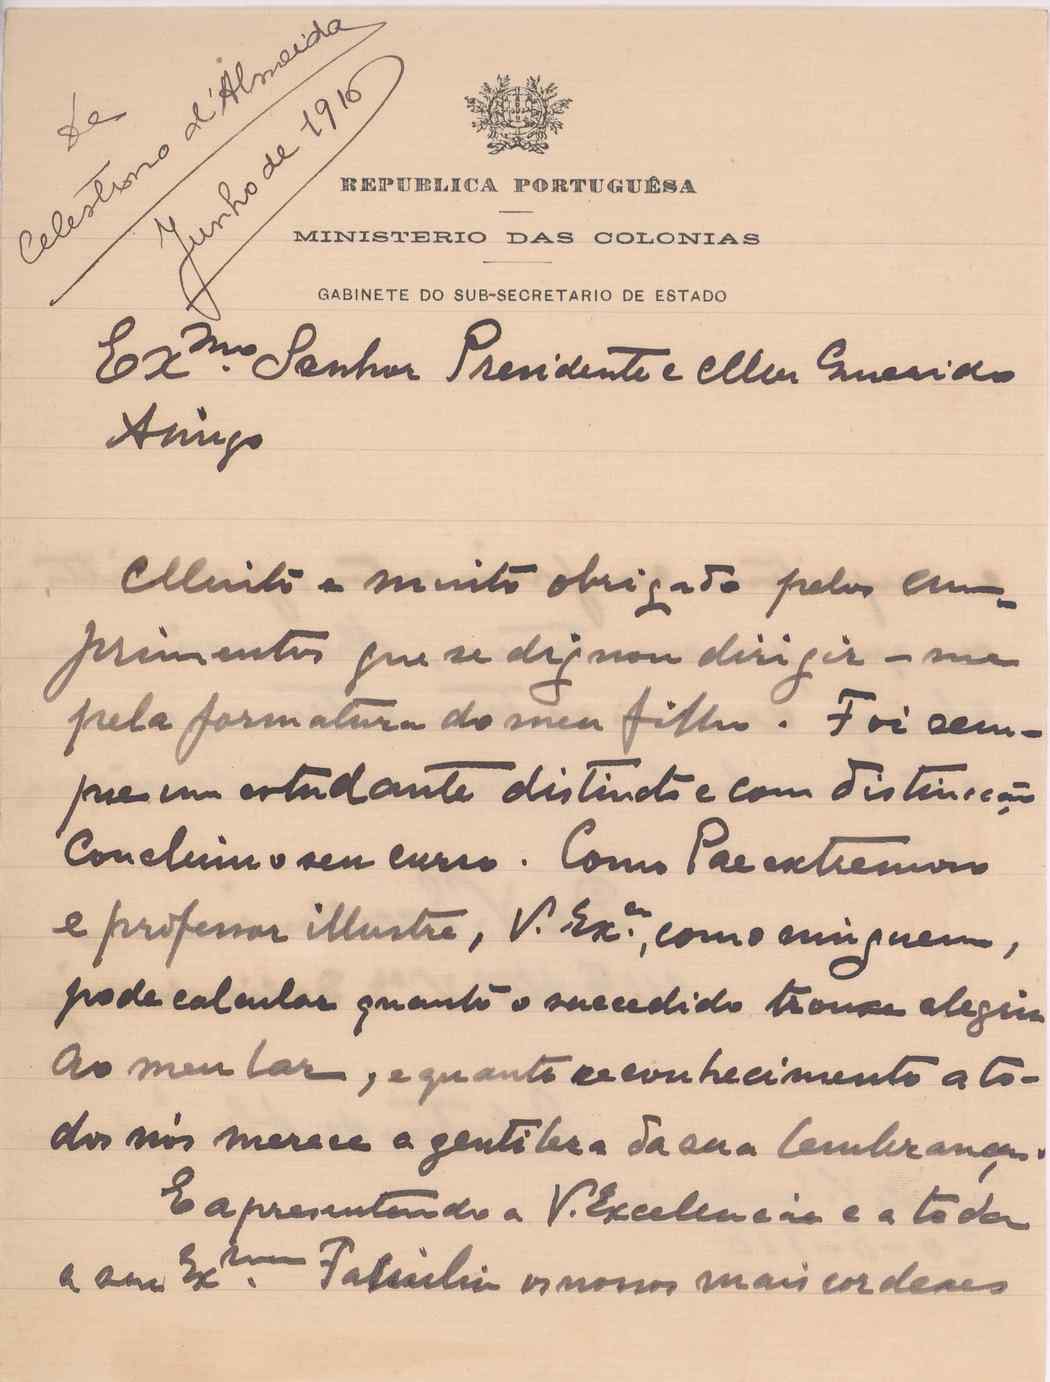 De
Celestino d'Almeida
Junho de 1916
REPUBLICA PORTUGUÊSA
MINISTERIO DAS COLONIAS
GABINETE DO SUB-SECRETARIO DE ESTADO
Exmo. Senhor Presidente e Meu Querido
Amigo
Muito e muito obrigado pelos cum-
primentos que se dignou dirigir-me
pela formatura do meu filho. Foi sem-
pre um estudante distincto e com distincção
concluiu o seu curso. Como Pae extremoso
e professor illustre, V. Exa., como ninguem,
pode calcular quanto o succedido trouxe alegria
ao meu lar, e quanto reconhecimento a to-
dos nós merece a gentileza da sua lembrança.
E apresentando a V. Excelencia e a toda
a sua Exma. Familia os nossos mais cordeaes